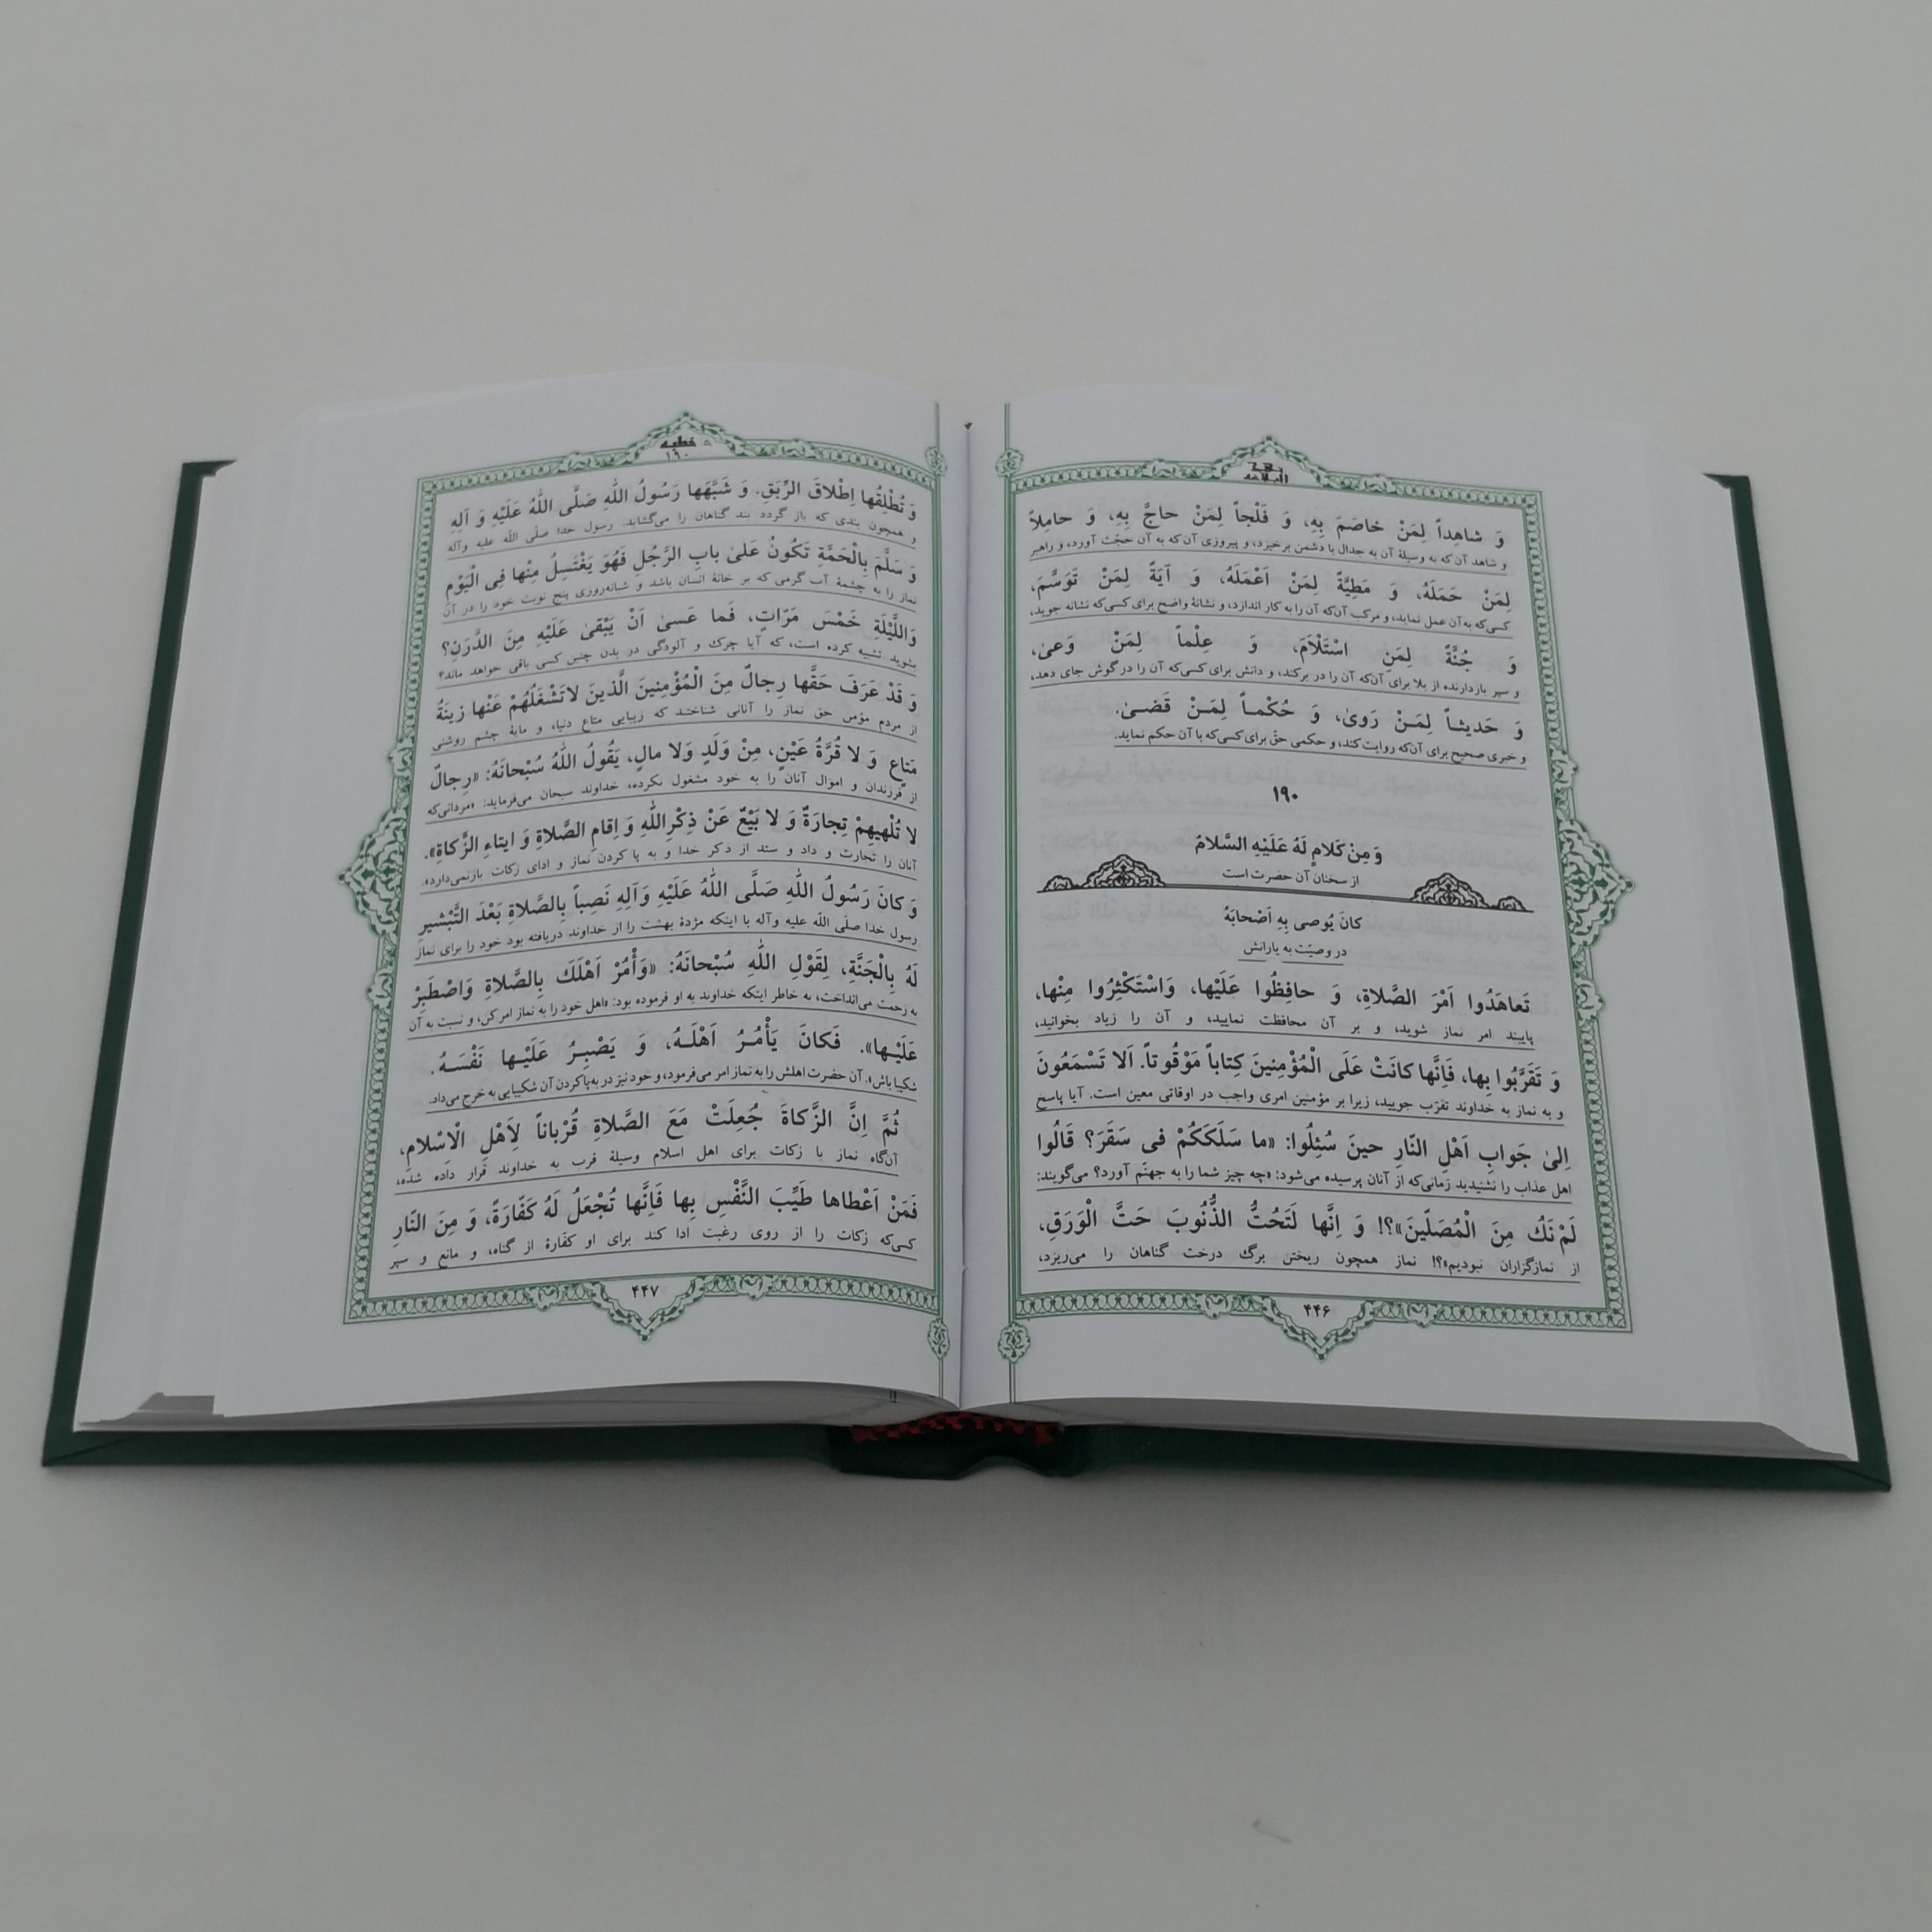 نهج
البلاغه
وَ شاهِداً لِمَنْ خاصَمَ بِهِ، وَ فَلْجاً لِمَنْ حاجَّ بِهِ، وَ حامِلاً
و شاهد آن که به وسیلهٔ آن به جدال با دشمن برخیزد، و پیروزی آن که به آن حجّت آورد، و راهبر
لِمَنْ حَمَلَهُ، وَ مَطِیَّةً لِمَنْ اَعْمَلَهُ، وَ آیَةً لِمَنْ تَوَسَّمَ،
کسی‌که به‌آن عمل نماید، و مرکب آن‌که آن را به کار اندازد، و نشانهٔ واضح برای کسی‌که نشانه جوید،
وَ جُنَّةً لِمَنِ اسْتَلْاَمَ، وَ عِلْماً لِمَنْ وَعیٰ،
و سپر بازدارنده از بلا برای آن‌که آن را در برکند، و دانش برای کسی‌که آن را در گوش جای دهد،
وَ حَدیثاً لِمَنْ رَویٰ، وَ حُکْماً لِمَنْ قَضیٰ.
و خبری صحیح برای آن‌که روایت کند، و حکمی حقّ برای کسی‌که با آن حکم نماید.
۱۹۰
وَ مِنْ کَلامٍ لَهُ عَلَیْهِ السَّلامُ
از سخنان آن حضرت است
کانَ یُوصی بِهِ اَصْحابَهُ
در وصیّت به یارانش
تَعاهَدُوا اَمْرَ الصَّلاةِ، وَ حافِظُوا عَلَیْها، وَاسْتَکْثِرُوا مِنْها،
پایبند امر نماز شوید، و بر آن محافظت نمایید، و آن را زیاد بخوانید،
وَ تَقَرَّبُوا بِها، فَاِنَّها کانَتْ عَلَی الْمُؤْمِنینَ کِتاباً مَوْقُوتاً. اَلا تَسْمَعُونَ
و به نماز به خداوند تقرّب جویید، زیرا بر مؤمنین امری واجب در اوقاتی معین است. آیا پاسخ
اِلیٰ جَوابِ اَهْلِ النّارِ حینَ سُئِلُوا: «ما سَلَکَکُمْ فی سَقَرَ؟ قَالُوا
اهل عذاب را نشنیدید زمانی‌که از آنان پرسیده می‌شود: «چه چیز شما را به جهنّم آورد؟ می‌گویند:
لَمْ نَکُ مِنَ الْمُصَلّینَ»؟! وَ اِنَّها لَتَحُتُّ الذُّنُوبَ حَتَّ الْوَرَقِ،
از نمازگزاران نبودیم»؟! نماز همچون ریختن برگ درخت گناهان را می‌ریزد،
۴۴۶
خطبه
۱۹۰
وَ تُطْلِقُها اِطْلاقَ الرِّبَقِ. وَ شَبَّهَها رَسُولُ اللّٰهِ صَلَّی اللّٰهُ عَلَیْهِ وَ آلِهِ
و همچون بندی که باز گردد بند گناهان را می‌گشاید. رسول خدا صلّی اللّه علیه وآله
وَ سَلَّمَ بِالْحَمَّةِ تَکُونُ عَلیٰ بابِ الرَّجُلِ فَهُوَ یَغْتَسِلُ مِنْها فِی الْیَوْمِ
نماز را به چشمهٔ آب گرمی که بر خانهٔ انسان باشد و شبانه‌روزی پنج نوبت خود را در آن
وَاللَّیْلَةِ خَمْسَ مَرّاتٍ، فَما عَسیٰ اَنْ یَبْقیٰ عَلَیْهِ مِنَ الدَّرَنِ؟
بشوید تشبیه کرده است، که آیا چرک و آلودگی در بدن چنین کسی باقی خواهد ماند؟
وَ قَدْ عَرَفَ حَقَّها رِجالٌ مِنَ الْمُؤْمِنینَ الَّذینَ لاتَشْغَلُهُمْ عَنْها زینَةُ
از مردم مؤمن حق نماز را آنانی شناختند که زیبایی متاع دنیا، و مایهٔ چشم روشنی
مَتاعٍ وَ لا قُرَّةُ عَیْنٍ، مِنْ وَلَدٍ وَلا مالٍ، یَقُولُ اللّٰهُ سُبْحانَهُ: «رِجالٌ
از فرزندان و اموال آنان را به خود مشغول نکرده، خداوند سبحان می‌فرماید: «مردانی‌که
لا تُلْهیهِمْ تِجارَةٌ وَ لا بَیْعٌ عَنْ ذِکْرِاللّٰهِ وَ اِقامِ الصَّلاةِ وَ ایتاءِ الزَّکاةِ».
آنان را تجارت و داد و ستد از ذکر خدا و به پا کردن نماز و ادای زکات بازنمی‌دارد».
وَ کانَ رَسُولُ اللّٰهِ صَلَّی اللّٰهُ عَلَیْهِ وَآلِهِ نَصِباً بِالصَّلاةِ بَعْدَ التَّبْشیرِ
رسول خدا صلّی اللّه علیه وآله با اینکه مژدهٔ بهشت را از خداوند دریافته بود خود را برای نماز
لَهُ بِالْجَنَّةِ، لِقَوْلِ اللّٰهِ سُبْحانَهُ: «وَأْمُرْ اَهْلَکَ بِالصَّلاةِ وَاصْطَبِرْ
به زحمت می‌انداخت، به خاطر اینکه خداوند به او فرموده بود: «اهل خود را به نماز امر کن، و نسبت به آن
عَلَیْها». فَکانَ یَأْمُرُ اَهْلَهُ، وَ یَصْبِرُ عَلَیْها نَفْسَهُ.
شکیبا باش». آن حضرت اهلش را به نماز امر می‌فرمود، و خود نیز در به‌پاکردن آن شکیبایی به خرج می‌داد.
ثُمَّ اِنَّ الزَّکاةَ جُعِلَتْ مَعَ الصَّلاةِ قُرْباناً لِاَهْلِ الْاِسْلامِ،
آن‌گاه نماز با زکات برای اهل اسلام وسیلهٔ قرب به خداوند قرار داده شده،
فَمَنْ اَعْطاها طَیِّبَ النَّفْسِ بِها فَاِنَّها تُجْعَلُ لَهُ کَفّارَةً، وَ مِنَ النّارِ
کسی‌که زکات را از روی رغبت ادا کند برای او کفّارهٔ از گناه، و مانع و سپر
۴۴۷